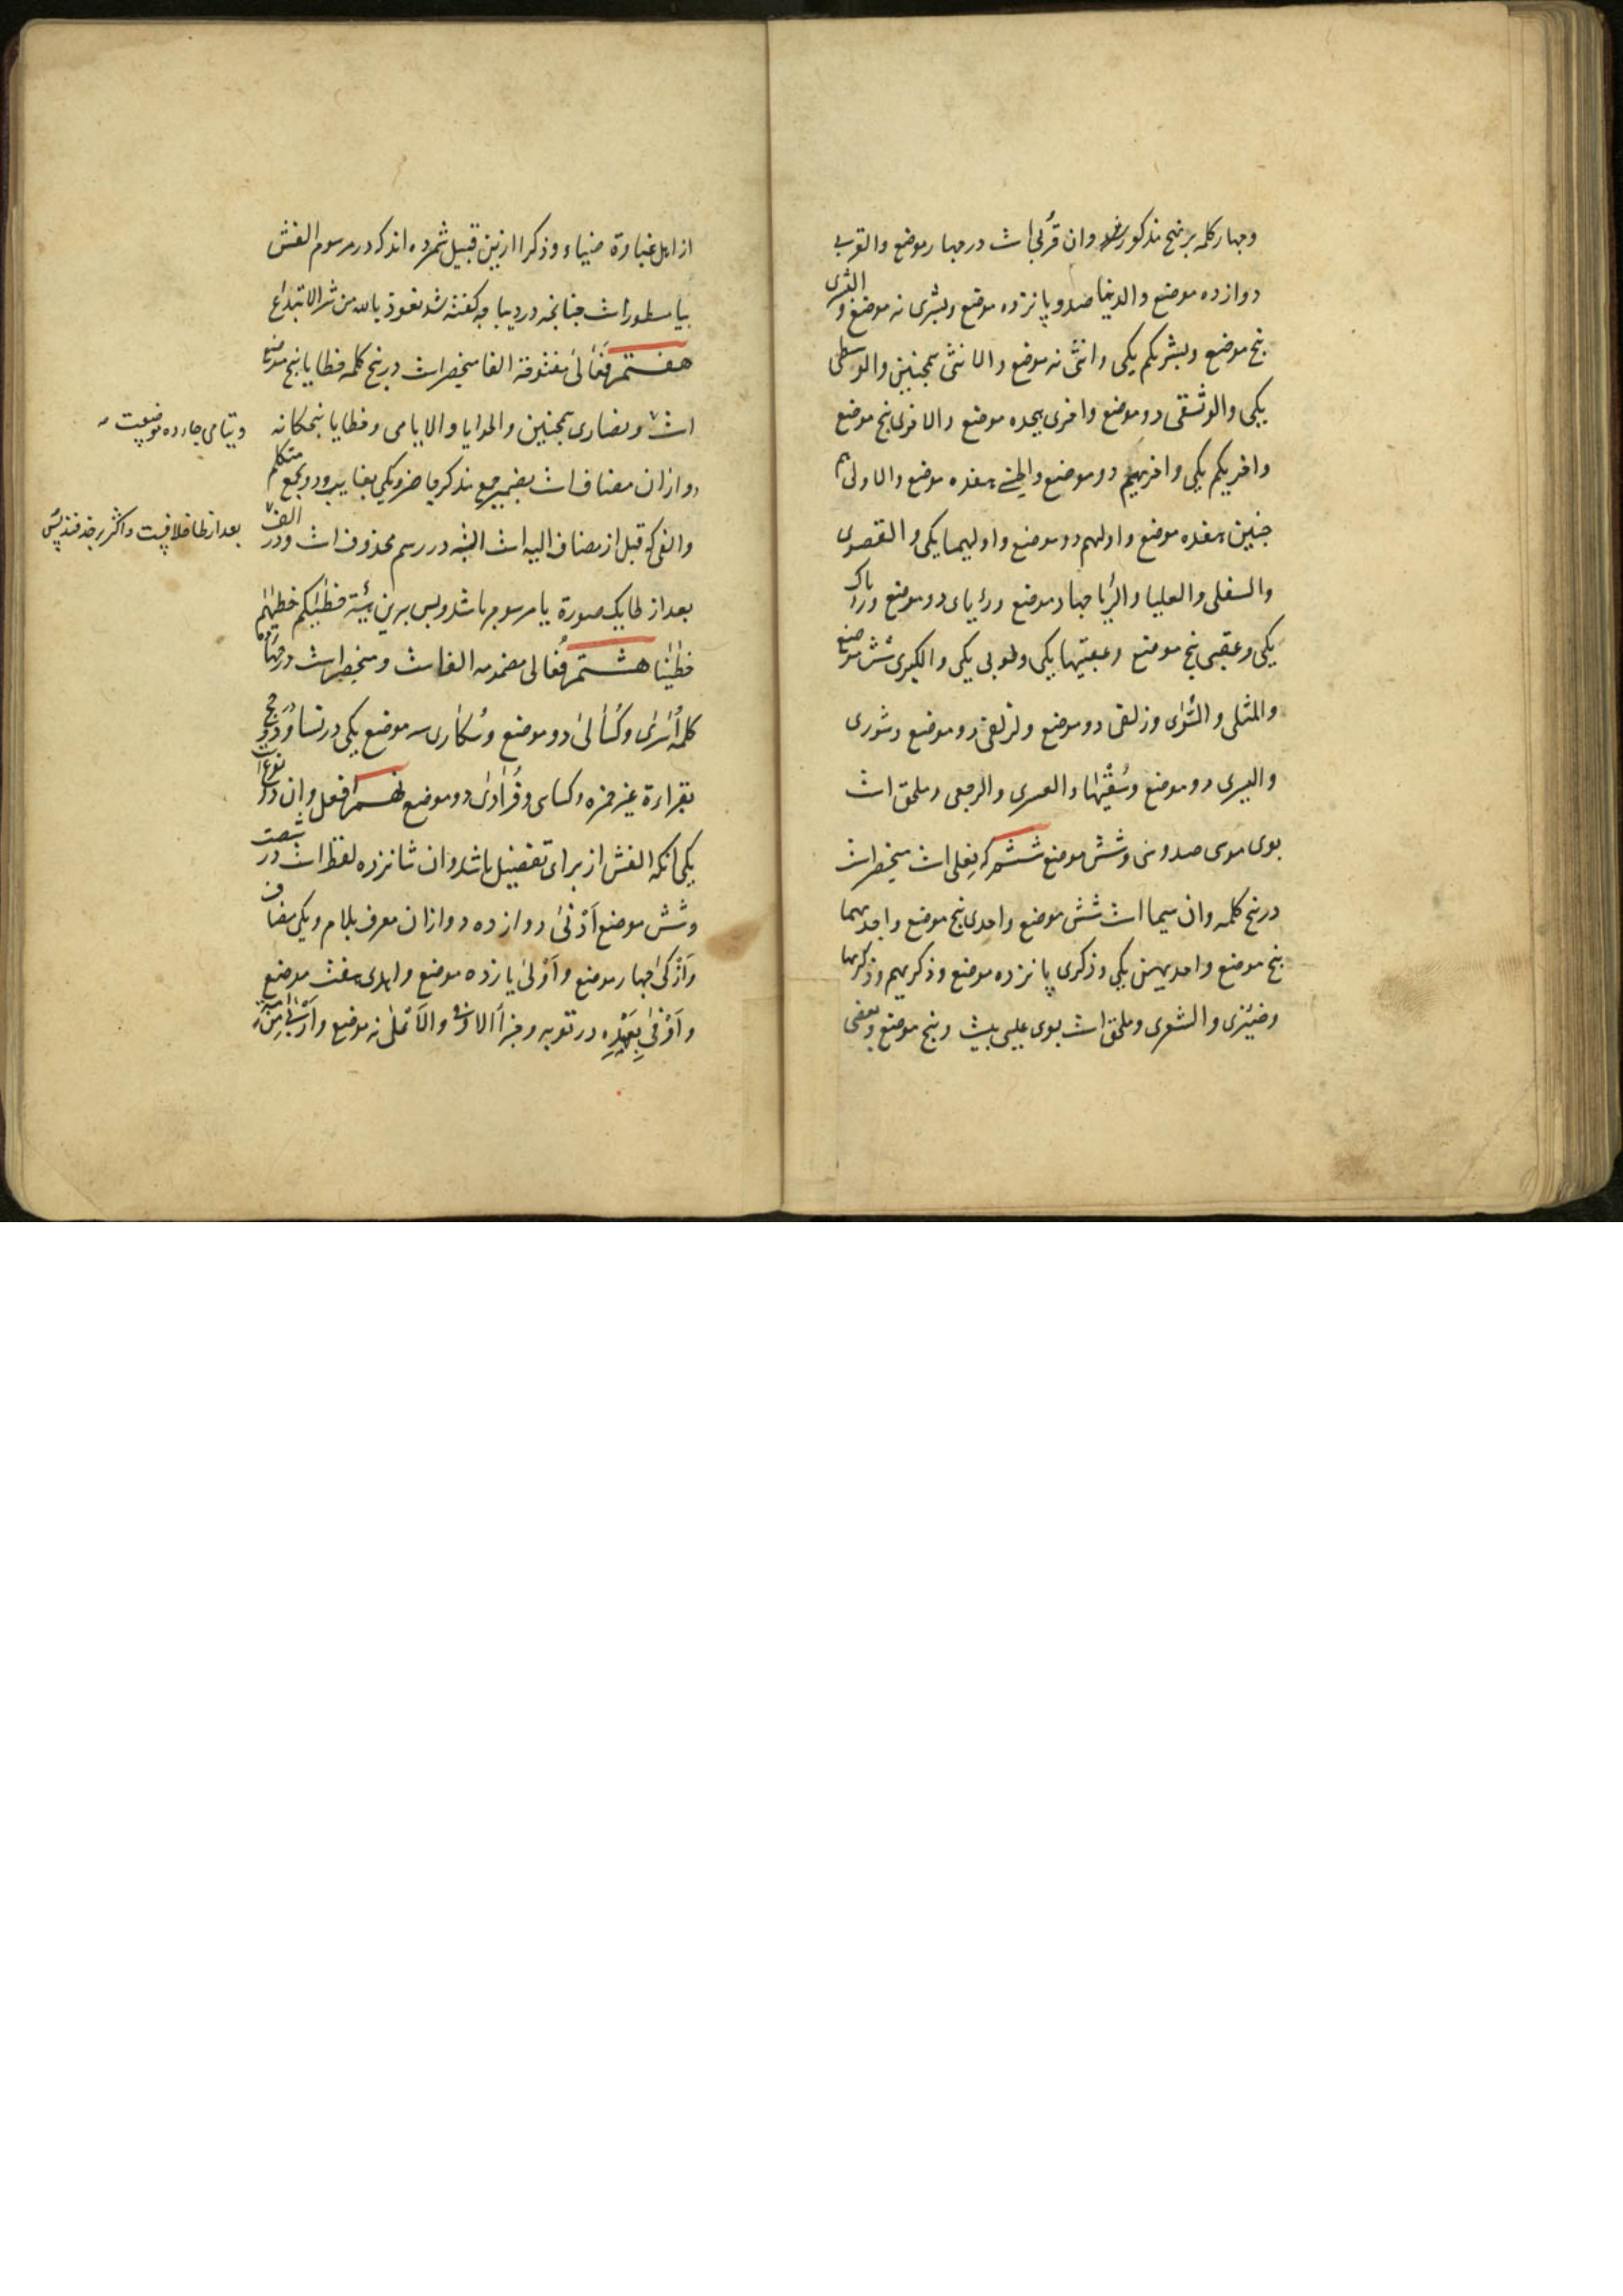 وچهار کلمه برنهج مذکور شد وان قُربی است در چهار موضع والقربی
دوازده موضع والدنیا صد و پانزده موضع وبشری نه موضع و البشری
پنج موضع وبشریکم یکی وانثی نه موضع والانثی همچنین والوسطی
یکی والوثقی دو موضع واخری هجده موضع والاخری پنج موضع
واخریکم یکی واخریهم دو موضع والحسنی هفده موضع والاولی هم
چنین هفده موضع واولیهم دو موضع واولیهما یکی والقصوی
والسفلی والعلیا والرُءیا چهار موضع ورءیای دو موضع ورءیاک
یکی وعقبی پنج موضع وعقبیها یکی وطوبی یکی والکبری شش موضع
والمثلی والسُوأی وزلفی دو موضع ولزلفی دو موضع وشوری
والیسری دو موضع وسُقْیٰها والعسری والرجعی وملحق است
بوی موسی صد وسی وشش موضع ششم که فِعلی است منحصر است
در پنج کلمه وان سیما است شش موضع واحدی پنج موضع واحدیهما
پنج موضع واحدیهن یکی وذکری پانزده موضع وذکریهم وذکریها
وضیزی والشعری وملحق است بوی عیسی بیست و پنج موضع وبعضی
از اهل غباوة ضیاء وذکرا ازین قبیل شمرده اند که در مرسوم الفش
بیا مسطور است چنانچه در دیباچه کفته شد نعوذ بالله من شر الابتداع
هفتم فَعالی مفتوحة الفا منحصر است در پنج کلمه خطایا پنج موضع
است ونصاری همچنین والحوایا والایامی وخطایا پنجکانه
ویتامی چهارده موضعست
دو ازان مضاف است بضمیر جمع مذکر حاضر ویکی بغایب ودو بجمع متکلم
والفی که قبل از مضاف الیه است البته در رسم محذوف است ودر الف
بعد از طا خلافیست واکثر بر حذفند پس
بعد از طا یک صورة یا مرسوم باشد وبس برین هیئة خطیٰکم خطیٰهم
خطیٰنا هشتم فُعالی مضمومه الفاست ومنحصر است در چهار
کلمه اُسٰریٰ وکُسٰالیٰ دو موضع وسُکاری سه موضع یکی در نسا ودو در حج
بقراءة غیر حمزه وکسای وفُرٰادیٰ دو موضع نهم افعل وان دو نوع است
یکی انکه الفش از برای تفضیل باشد وان شانزده لفظ است در شصت
وشش موضع اَدْنیٰ دوازده دو ازان معرف بلام ویکی مضاف
واَزْکیٰ چهار موضع واَوْلیٰ یازده موضع واهدی هفت موضع
واَوْفیٰ بِعَهْدِهِ در توبه وجزأ الاوفی والاَعْلیٰ نه موضع واَرْبیٰ مِنْ